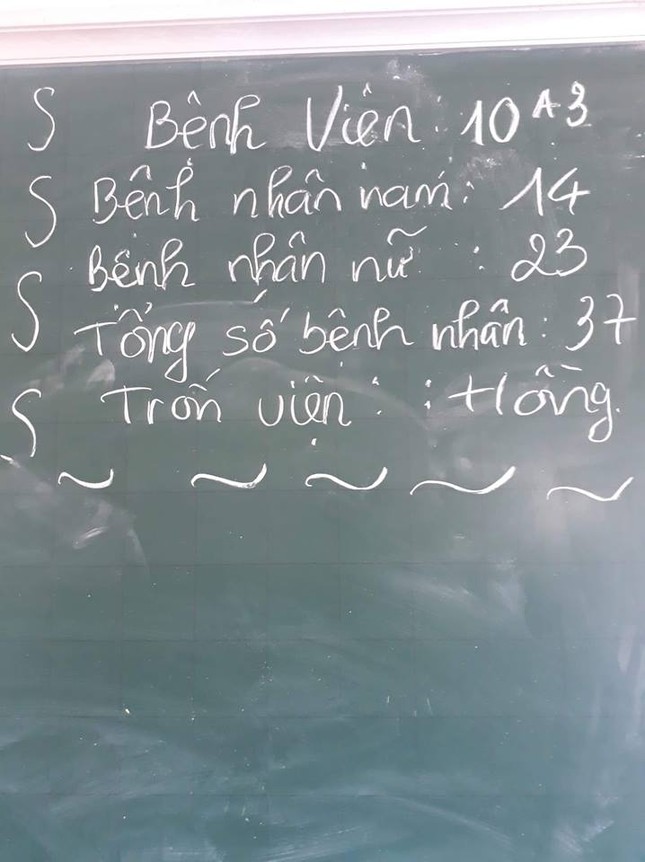 Bệnh Viện : 10A3
Bệnh nhân nam : 14
Bệnh nhân nữ : 23
Tổng số bệnh nhân : 37
Trốn viện : Hồng.